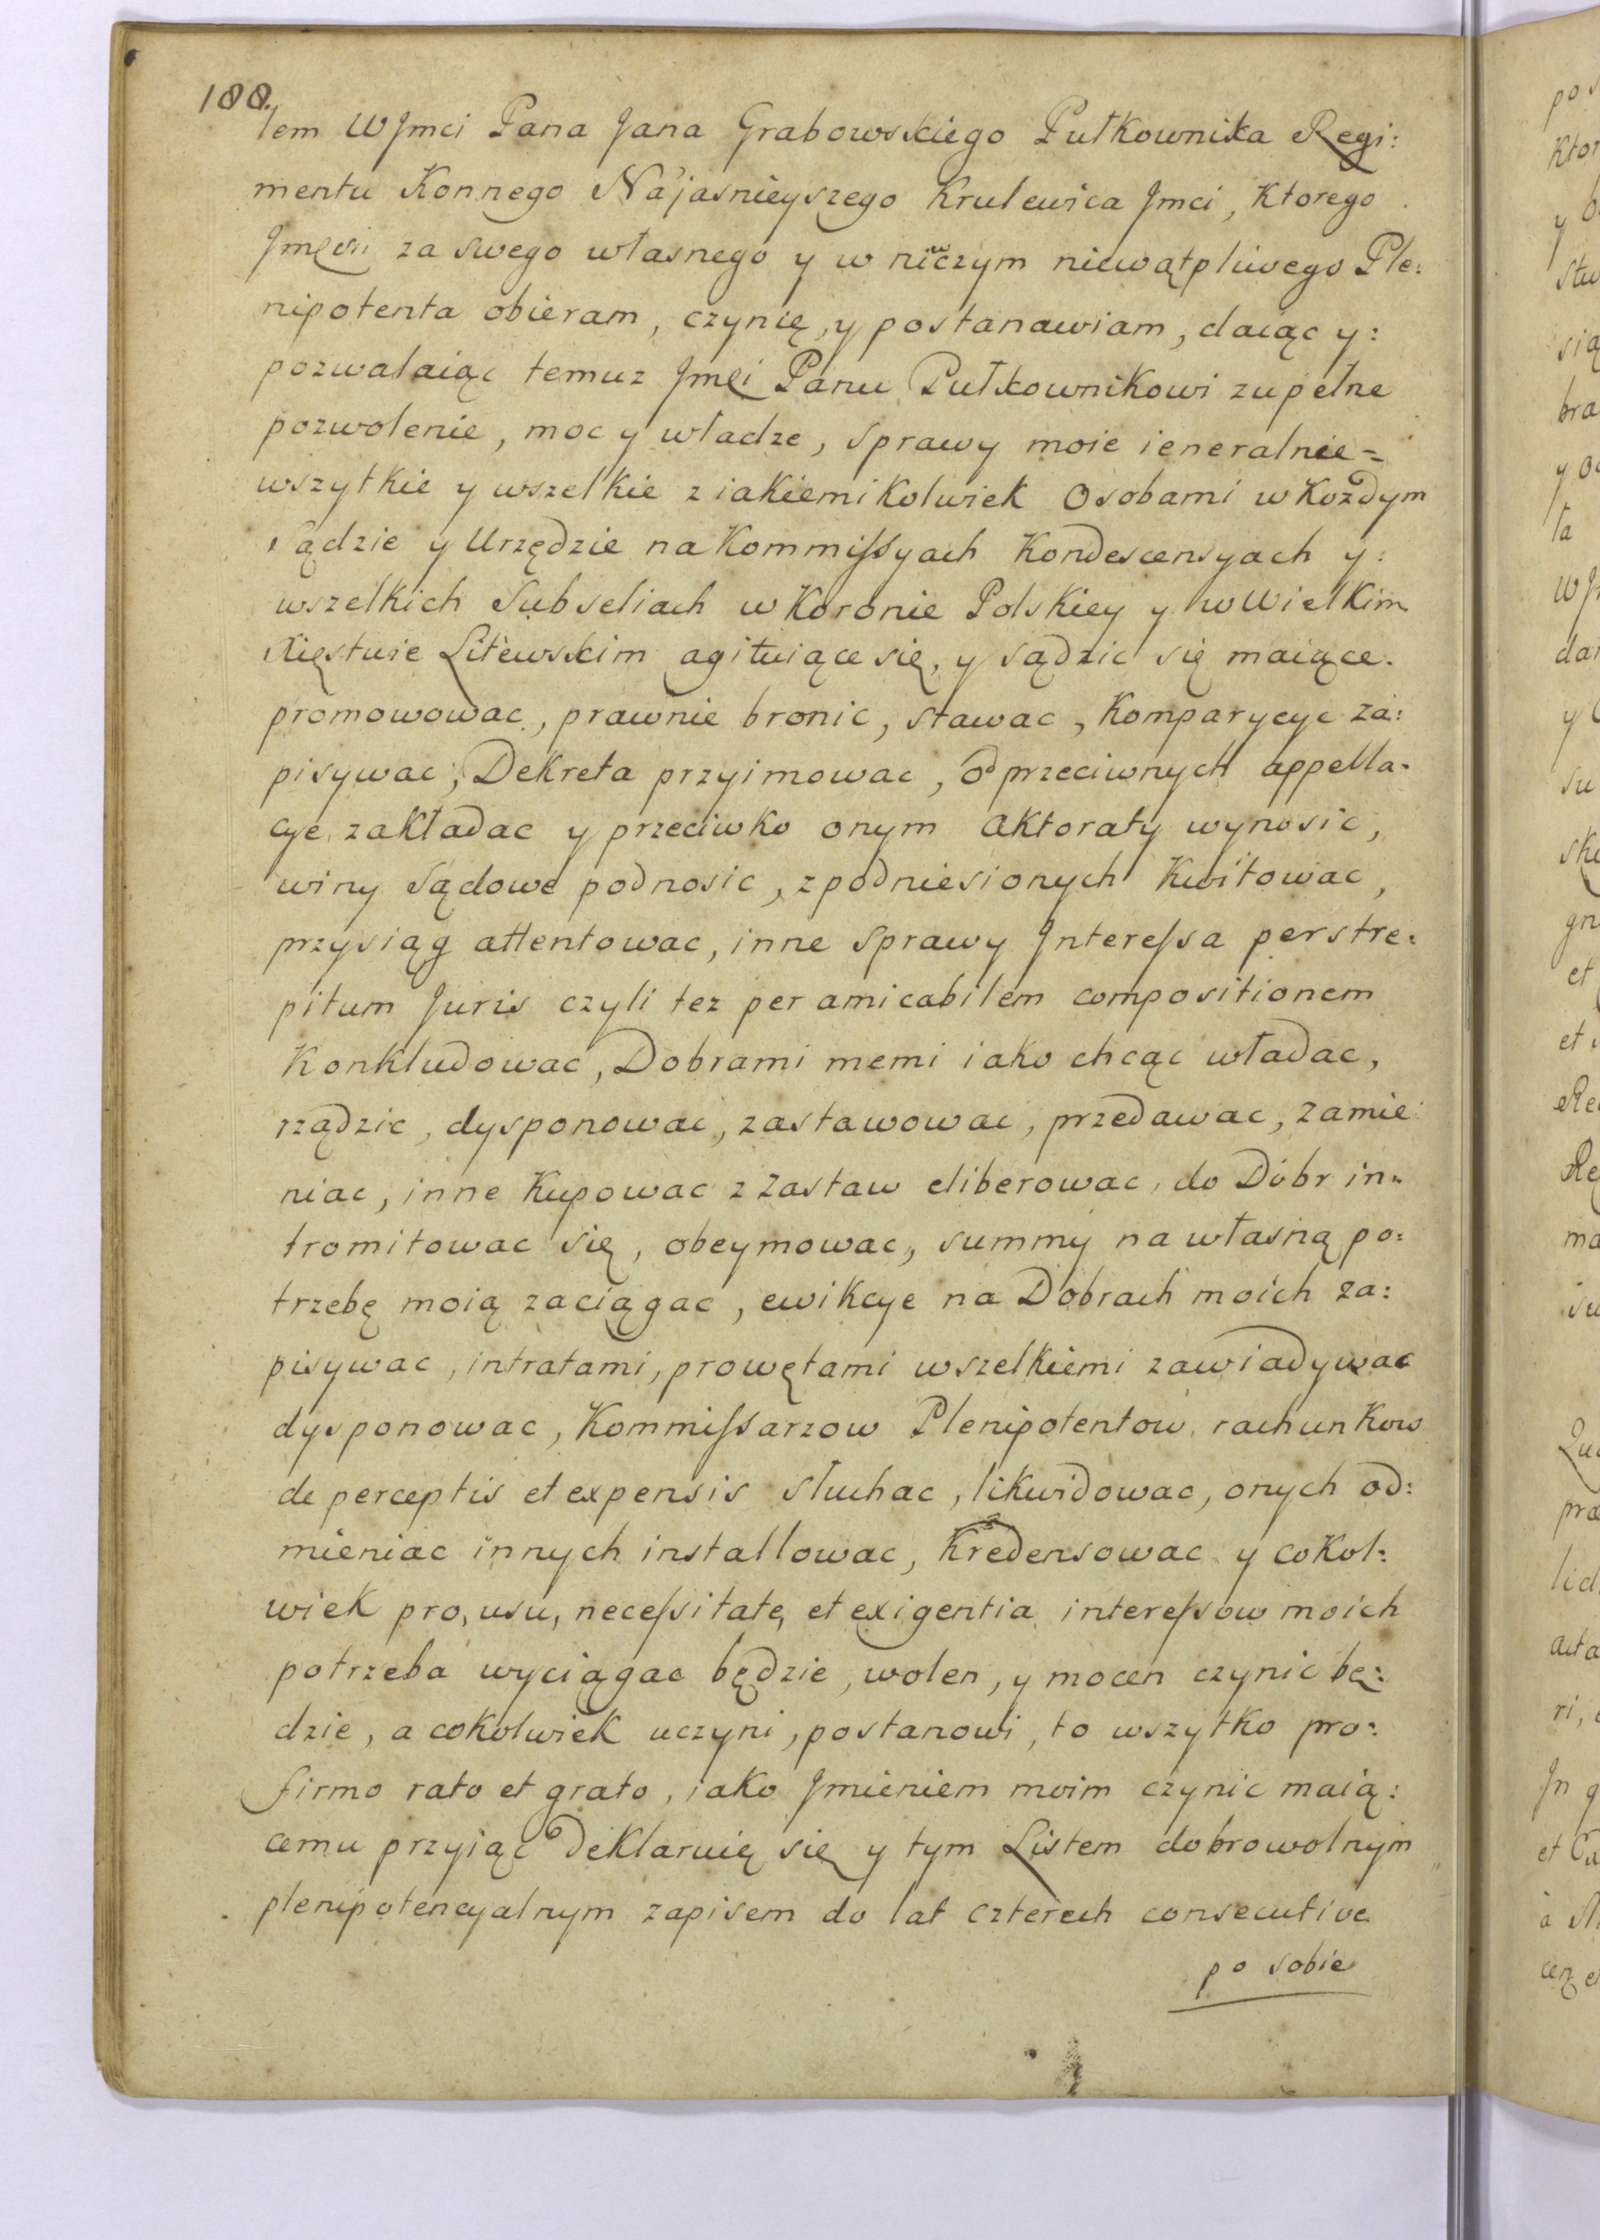 188.
tem WJmci Pana Jana Grabowskiego Pułkownika Regi:
mentu Konnego Najasnieyszego Krulewica Jmci, Ktorego
Jmęści za swego własnego y w niczym niewątpliwego Ple:
nipotenta obieram, czynię, y postanawiam, daiąc y:
pozwalaiąc temuz Jmęi Panu Pułkownikowi zupełne
pozwolenie, moc y władze, sprawy moie ieneralnie=
wszytkie y wszelkie z iakiemi kolwiek Osobami w kozdym
sądzie y Urzędzie na Kommissyach Kondescensyach y:
wszelkich Subseliach w Koronie Polskiey y w Wielkim
Xięstwie Litewskim agituiące się, y sądzic się maiące.
promowowac, prawnie bronic, stawac, Komparycye za:
pisywac, Dekreta przyimowac, od przeciwnych appella:
cye zakładac y przeciwko onym aktoraty wynosic,
winy sądowe podnosic, z podniesionych Kwitowac,
przysiąg attentowac, inne sprawy Interessa per stre:
pitum Juris czyli tez per amicabilem compositionem
Konkludowac, Dobrami memi iako chcąc władac,
rządzic, dysponowac, zastawowac, przedawac, zamie
niac, inne Kupowac z zastaw eliberowac, do Dobr in=
tromitowac się, obeymowac, summy na własną po:
trzebę moią zaciągac, ewikcye na Dobrach moich za:
pisywac, intratami, prowętami wszelkiemi zawiadywac
dysponowac, Kommissarzow Plenipotentow, rachunkow
de perceptis et expensis słuchac, likwidowac, onych od:
mieniac innych installowac, Kredensowac y cokol:
wiek pro, usu, necessitate, et exigentia interessow moich
potrzeba wyciągac będzie, wolen, y mocen czynic bę:
dzie, a cokolwiek uczyni, postanowi, to wszytko pro:
firmo rato et grato, iako Jmieniem moim czynic maią:
cemu przyiąc deklaruię się y tym Listem dobrowolnym
plenipotencyalnym zapisem do lat czterech consecutive
po sobie